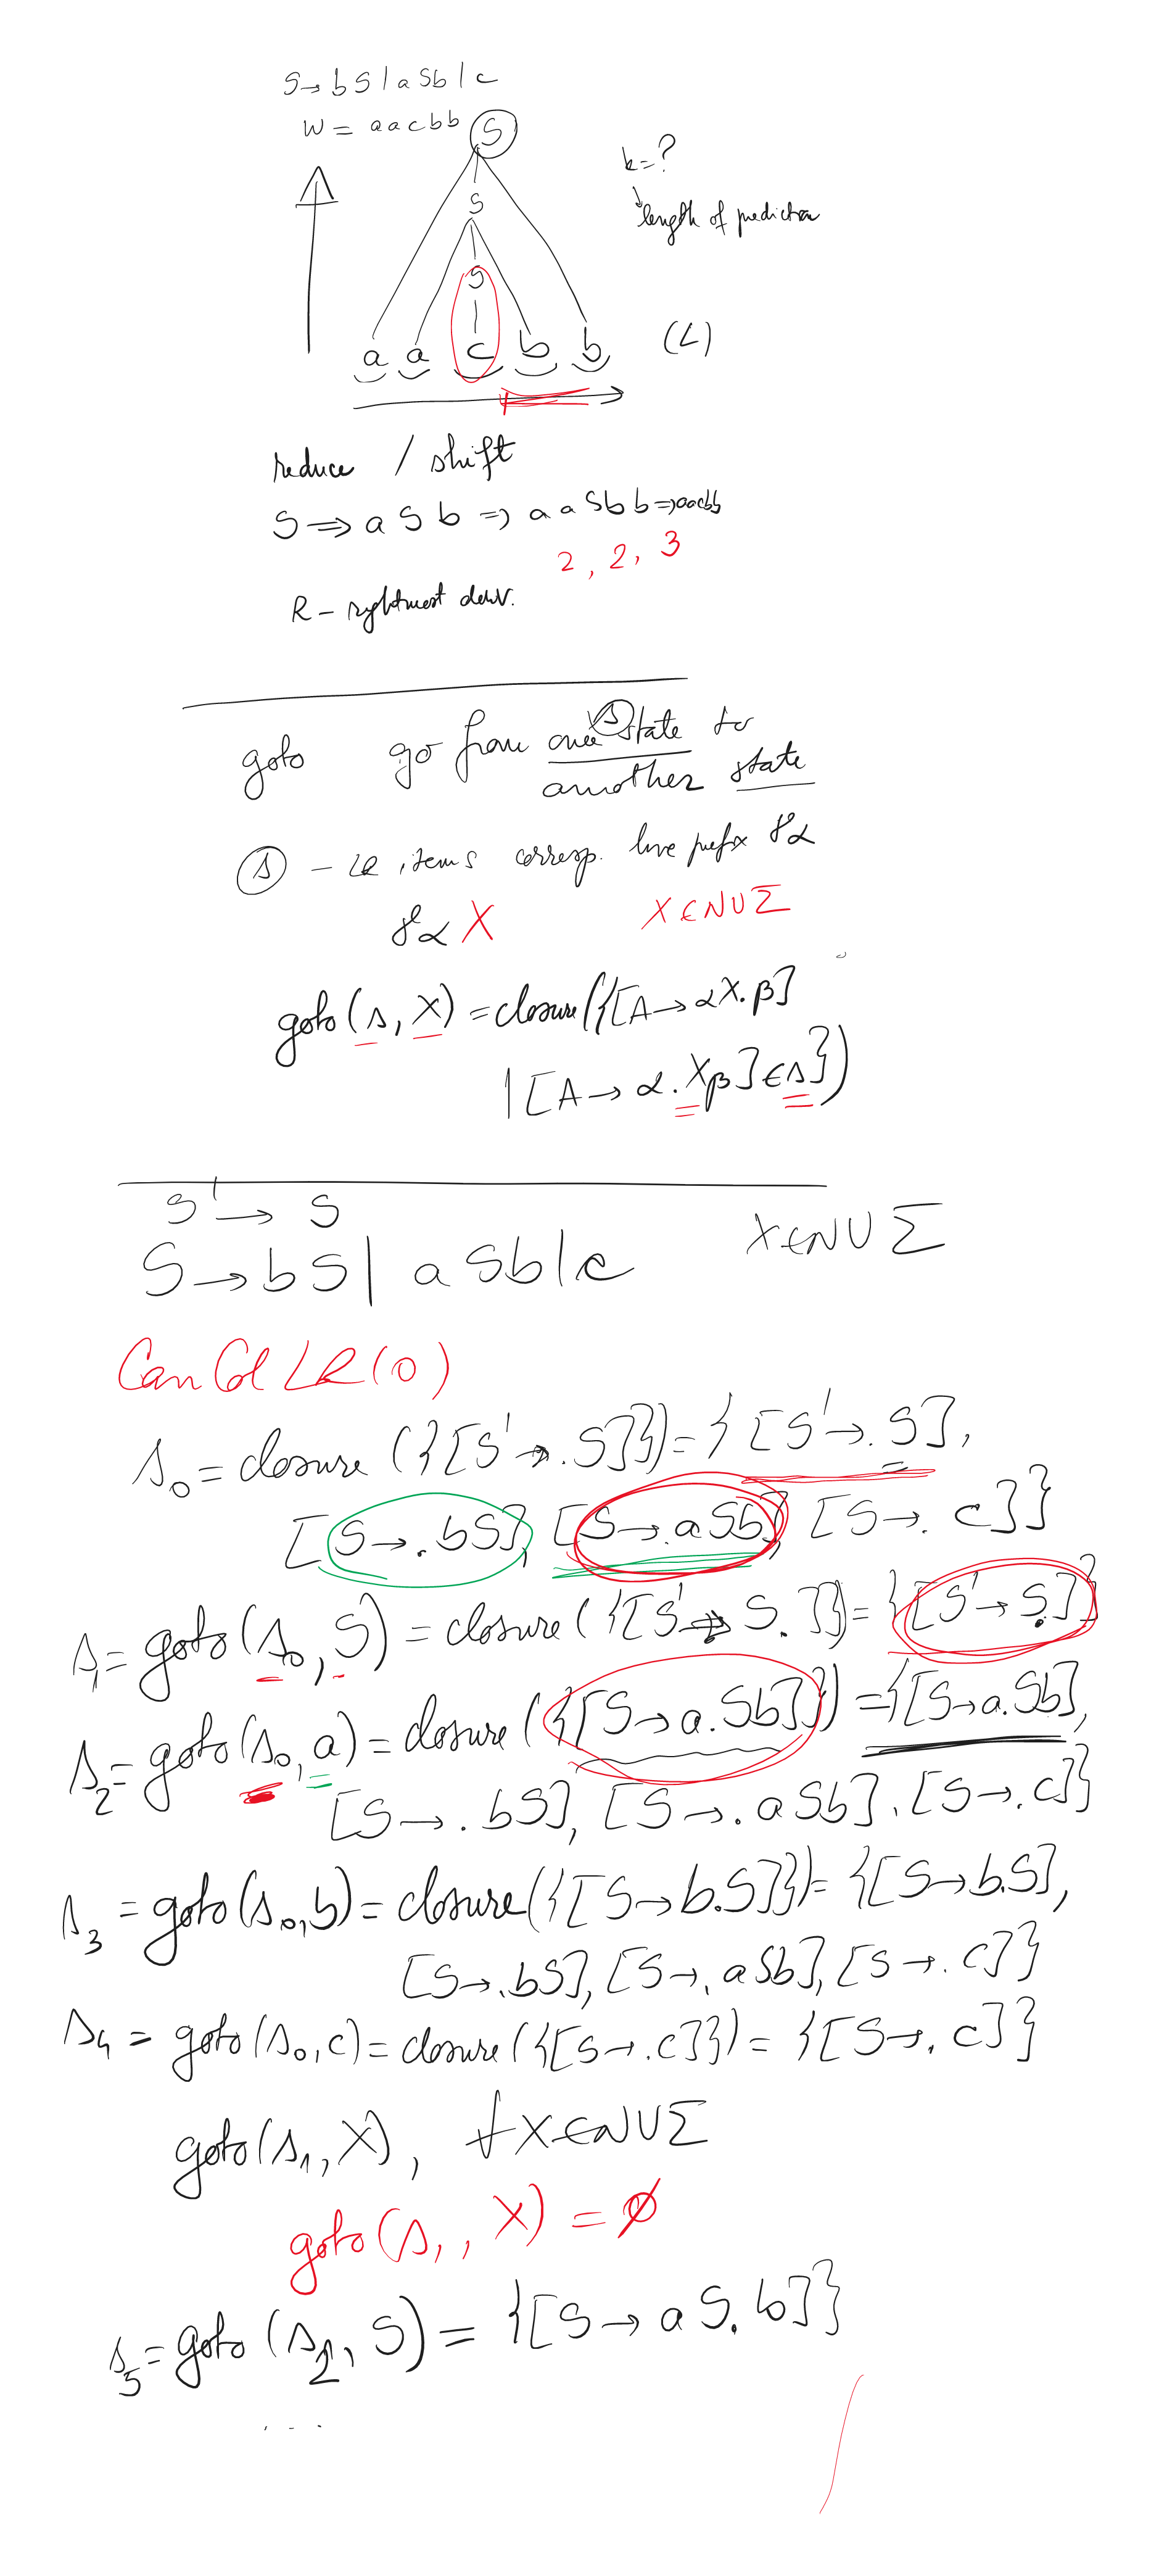 S → bS | aSb | c
w = aacbb
S
k = ?
S
length of prediction
S
a a c b b
(L)
reduce / shift
S ⇒ aSb ⇒ aaSbb ⇒ aacbb
2, 2, 3
R – rightmost deriv.
goto go from one state to
s
another state
s – LR items corresp. live prefix γα
γα X X ∈ N∪Σ
goto(s, X) = closure({[A → αX.β]
| [A → α.Xβ] ∈ s})
S' → S
S → bS | aSb | c X ∈ N∪Σ
CanCol LR(0)
s0 = closure({[S' → .S]}) = {[S' → .S],
[S → .bS], [S → .aSb], [S → .c]}
s1 = goto(s0, S) = closure({[S' → S.]}) = {[S' → S.]}
s2 = goto(s0, a) = closure({[S → a.Sb]}) = {[S → a.Sb],
[S → .bS], [S → .aSb], [S → .c]}
s3 = goto(s0, b) = closure({[S → b.S]}) = {[S → b.S],
[S → .bS], [S → .aSb], [S → .c]}
s4 = goto(s0, c) = closure({[S → .c]}) = {[S → .c]}
goto(s1, X), ∀X ∈ N∪Σ
goto(s1, X) = ∅
s5 = goto(s2, S) = {[S → aS.b]}
...